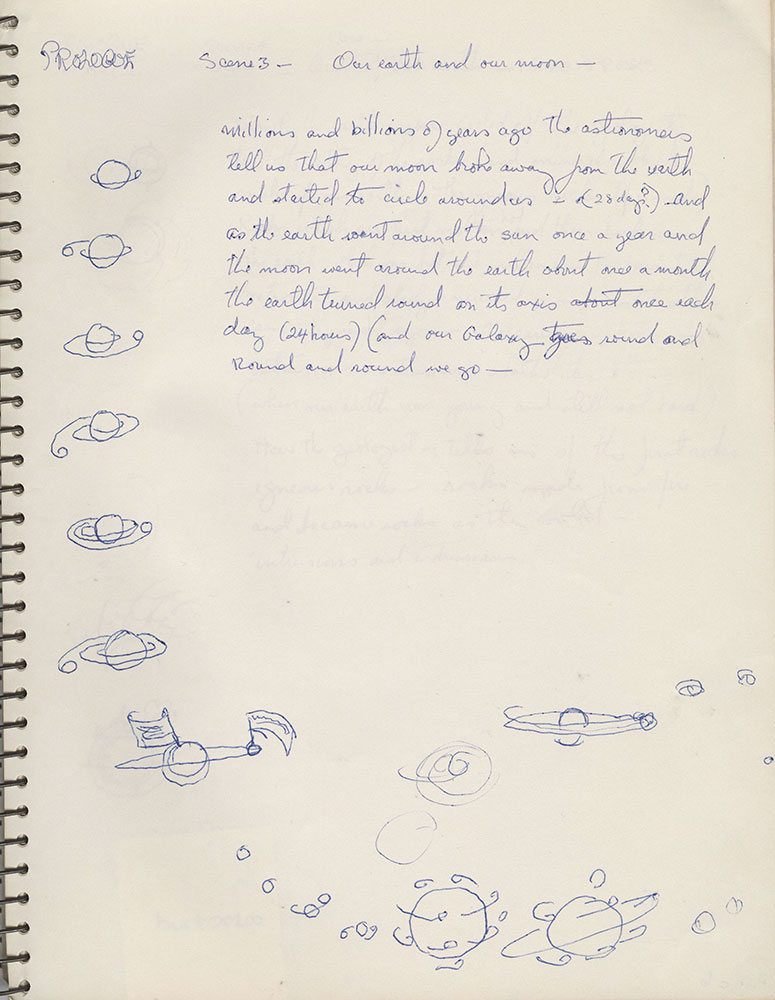 PROLOGUE Scene 3 – Our earth and our moon –
millions and billions of years ago the astronomers
tell us that our moon broke away from the earth
and started to circle around us – (28 days?) and
as the earth went around the sun once a year and
the moon went around the earth about once a month
the earth turned round on its axis about once each
day (24 hours) (and our Galaxy goes round and
Round and round we go –